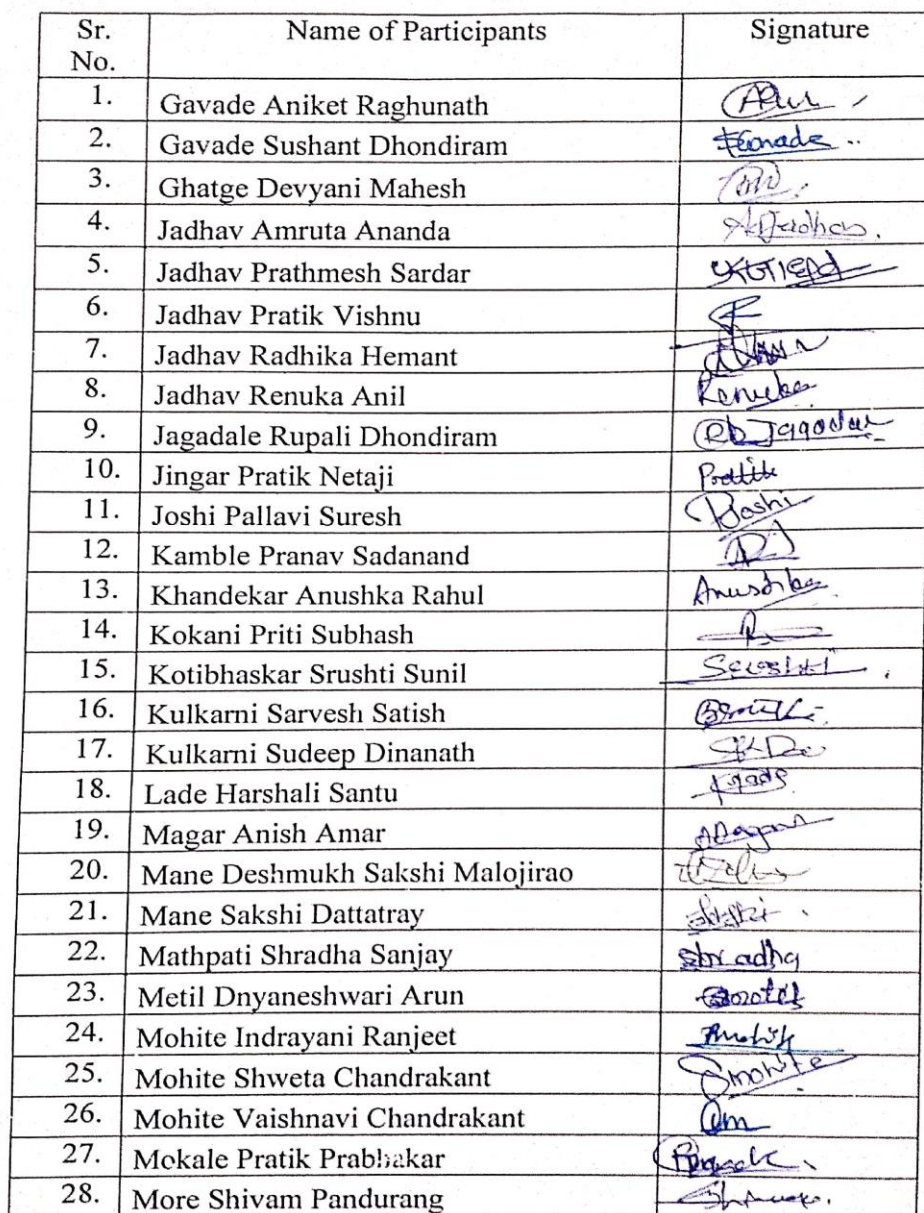 Sr. No. Name of Participants Signature
1. Gavade Aniket Raghunath
2. Gavade Sushant Dhondiram
3. Ghatge Devyani Mahesh
4. Jadhav Amruta Ananda
5. Jadhav Prathmesh Sardar
6. Jadhav Pratik Vishnu
7. Jadhav Radhika Hemant
8. Jadhav Renuka Anil Renuka
9. Jagadale Rupali Dhondiram
10. Jingar Pratik Netaji Pratik
11. Joshi Pallavi Suresh PJoshi
12. Kamble Pranav Sadanand
13. Khandekar Anushka Rahul Anushka
14. Kokani Priti Subhash
15. Kotibhaskar Srushti Sunil
16. Kulkarni Sarvesh Satish
17. Kulkarni Sudeep Dinanath
18. Lade Harshali Santu
19. Magar Anish Amar
20. Mane Deshmukh Sakshi Malojirao
21. Mane Sakshi Dattatray
22. Mathpati Shradha Sanjay Shradha
23. Metil Dnyaneshwari Arun
24. Mohite Indrayani Ranjeet
25. Mohite Shweta Chandrakant Smohite
26. Mohite Vaishnavi Chandrakant
27. Mokale Pratik Prabhakar
28. More Shivam Pandurang